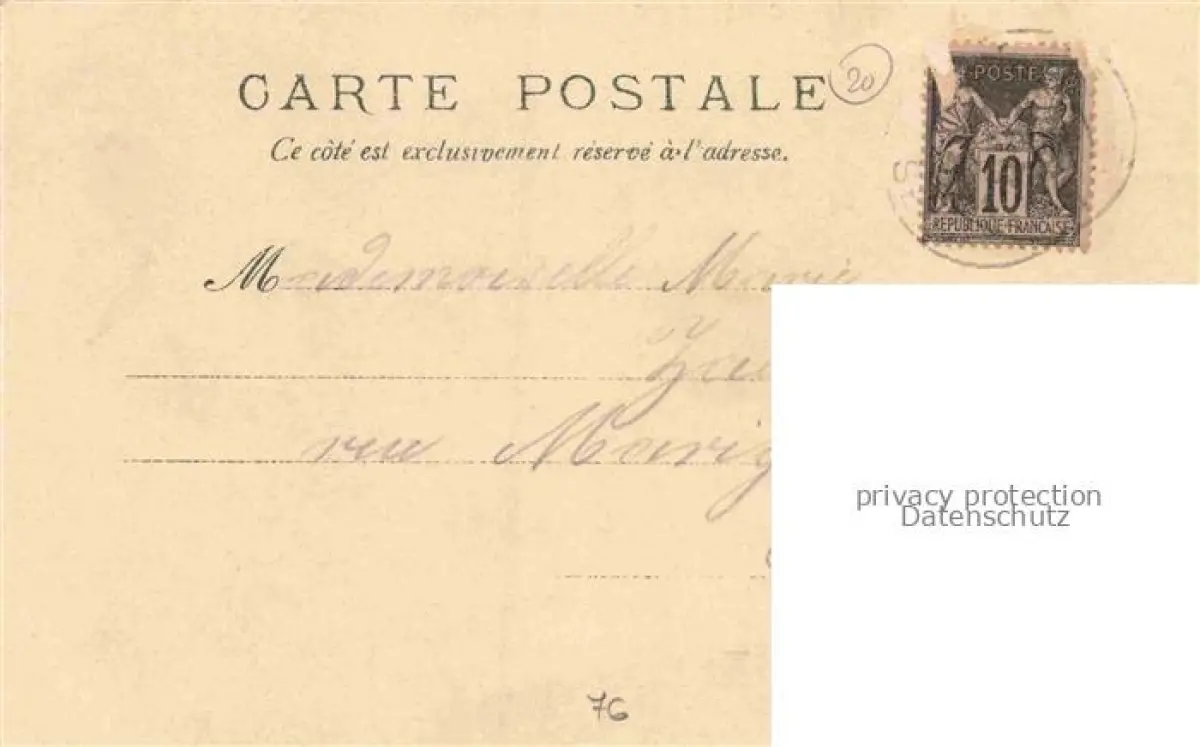 CARTE POSTALE
20
POSTE
Ce côté est exclusivement réservé à l'adresse.
10
REPUBLIQUE FRANCAISE
Mademoiselle Marie
rue
privacy protection
Datenschutz
76